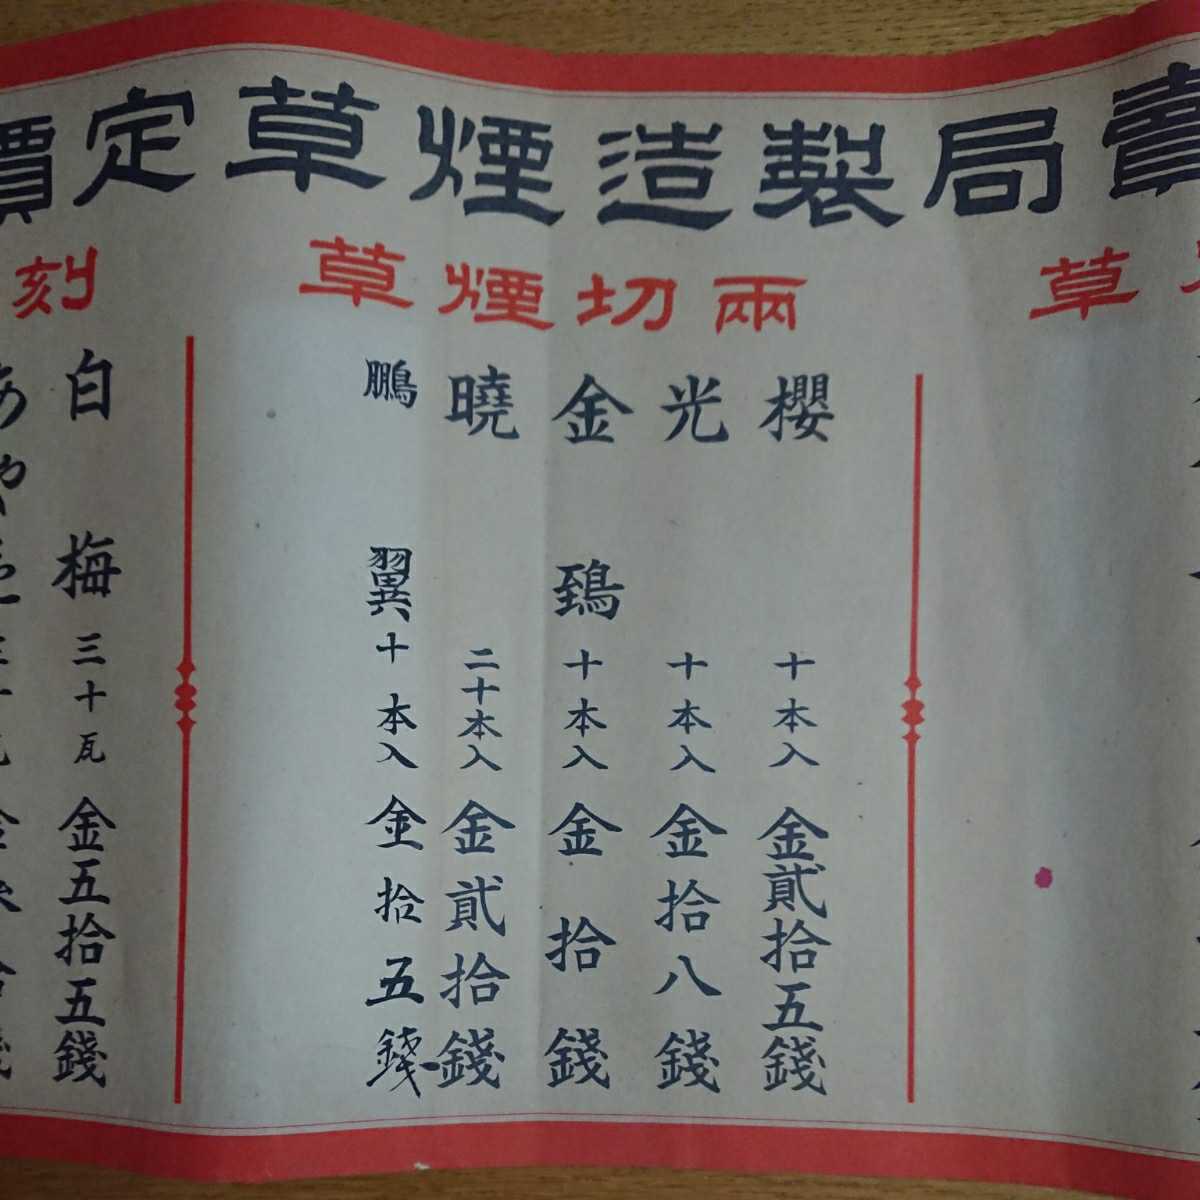 賣局製造煙草定價
草
兩切煙草
櫻 十本入 金貳拾五錢
光 十本入 金拾八錢
金鵄 十本入 金拾錢
曉 二十本入 金貳拾錢
鵬翼 十本入 金拾五錢
刻
白梅 三十瓦 金五拾五錢
あやめ